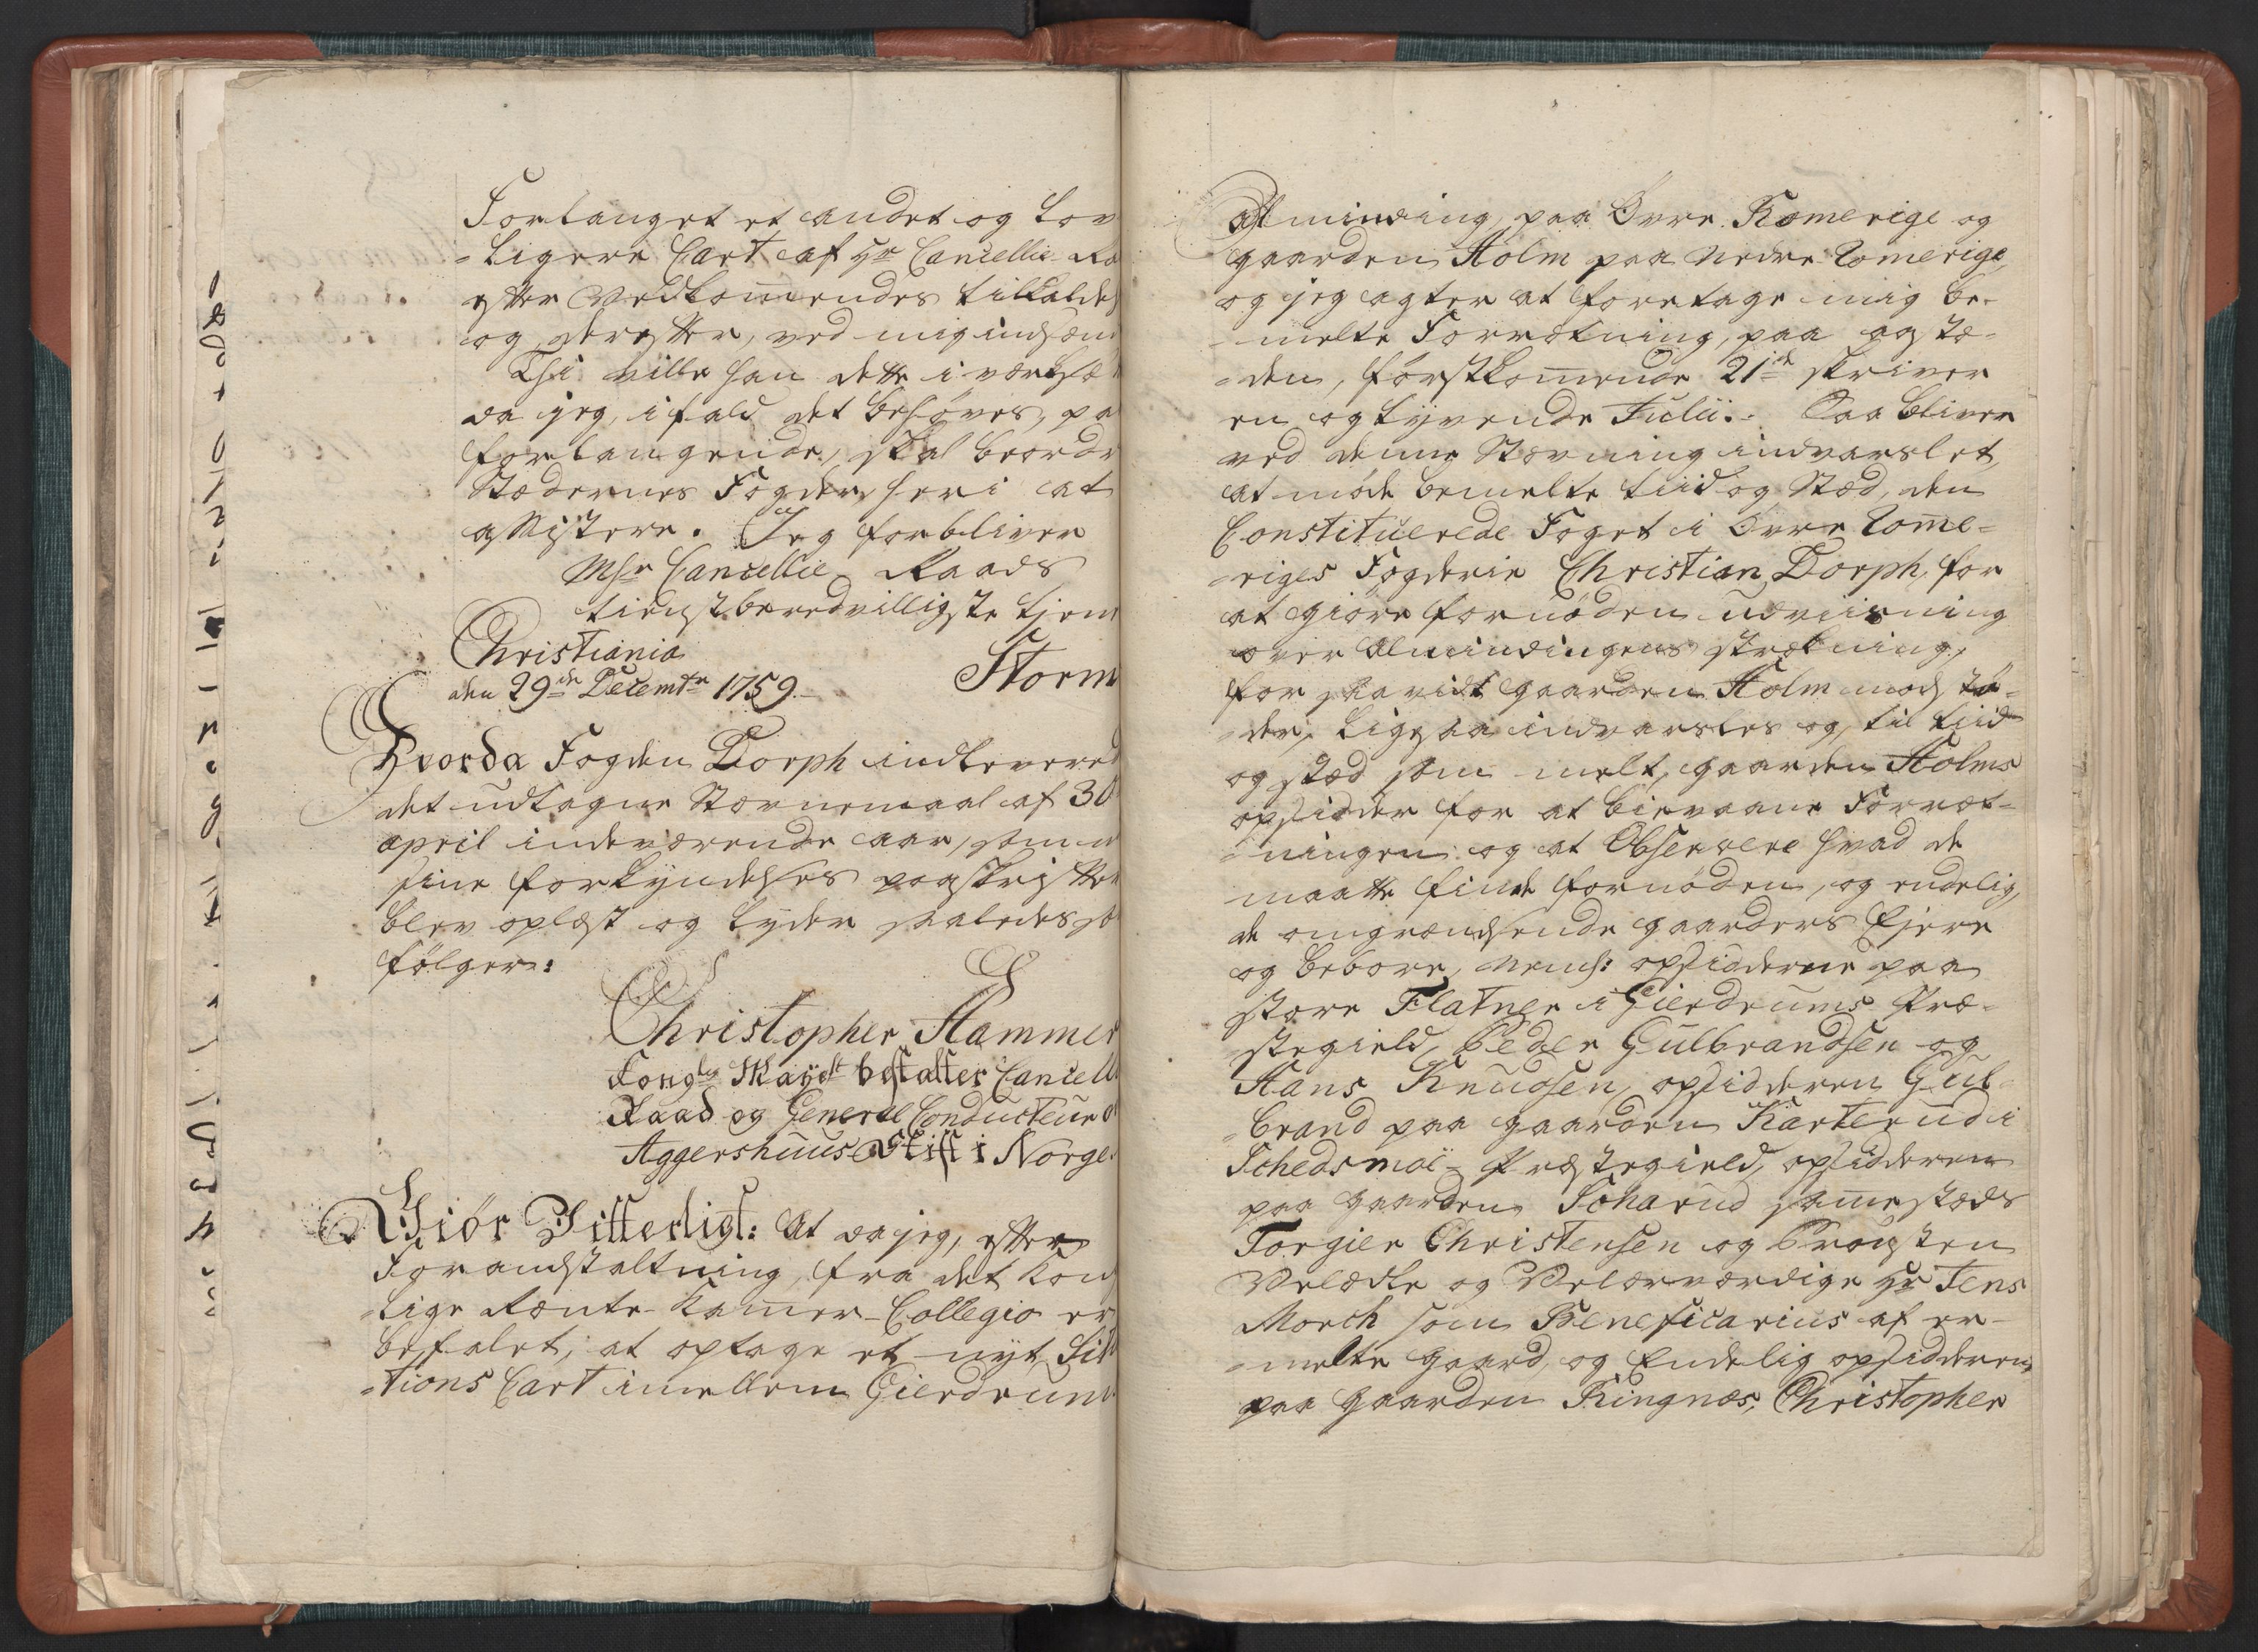 Forlanget et andet og lov
-ligere Cart af Hr Cancellie Ra
efter Vedkom̄endes tilkaldel
og, derefter, ved mig indsen
Thi ville han dette i værksæ
da jeg, ifald det behøves, pa
forlangende, skal beordr
Stædernes Fogder heri at
assistere. Jeg forbliver
Msr Cancellie Raads
tienstberedvilligste tjen
Christiania
den 29de Decembr 1759.
Storm
Hvorda Fogden Dorph indlevered
det udtagne Stævnemaal af 30
april indeværende aar, som m
sine forkyndelses paaskrifter
blev oplæst og lyder saaledes so
følger:
Christopher Hammer
Kongls Mayts bestalter Cancelli
Raad og General Conducteur o
Aggershuus Stift i Norge.
Giør Vitterligt: At da jeg, efter
Foranstaltning, fra det Kon
-lige Rænte-Kam̄er-Collegio er
befalet, at optage et nyt Sit
-tions Cart imellem Gierdrum
Alminding paa Øvre Romerige og
gaarden Holm paa Nedre Romerige,
og jeg agter at foretage mig be-
-melte Forrætning, paa aastæ-
-den, førstkom̄ende 21de skriver
en og tyvende Julii. Saa bliver
ved denne Stævning indvarslet,
at møde bemelte tiid og Stæd, den
Constituerede Foget i Øvre Rom̄e-
-riges Fogderie Christian Dorph, for
at giøre fornøden udviisning
over Almindingens strækning,
for saavidt gaarden Holm mod stø-
-der, ligesaa indvarsles og, til tiid
og stæd som melt, gaarden Holms
opsidder for at bievaane Forræt-
-ningen og at Observere hvad de
maatte finde fornøden, og endelig,
de omgrændsende gaarders Ejere
og beboere, nemlig: opsidderne paa
store Flatner i Gierdrums Præ-
stegield, Peder Gulbrandsen og
Hans Knudsen, opsidderen Gul-
-brand paa gaarden Karterud i
Schedsmoe-Præstegield, opsidderen
paa gaarden Joharud sam̄estæds
Torgier Christensen og Prousten
Velædle og Velærværdige Hr Jens
Morch som Beneficarius af er-
-melte gaard, og Endelig opsidderen
paa gaarden Ringnæs, Christopher